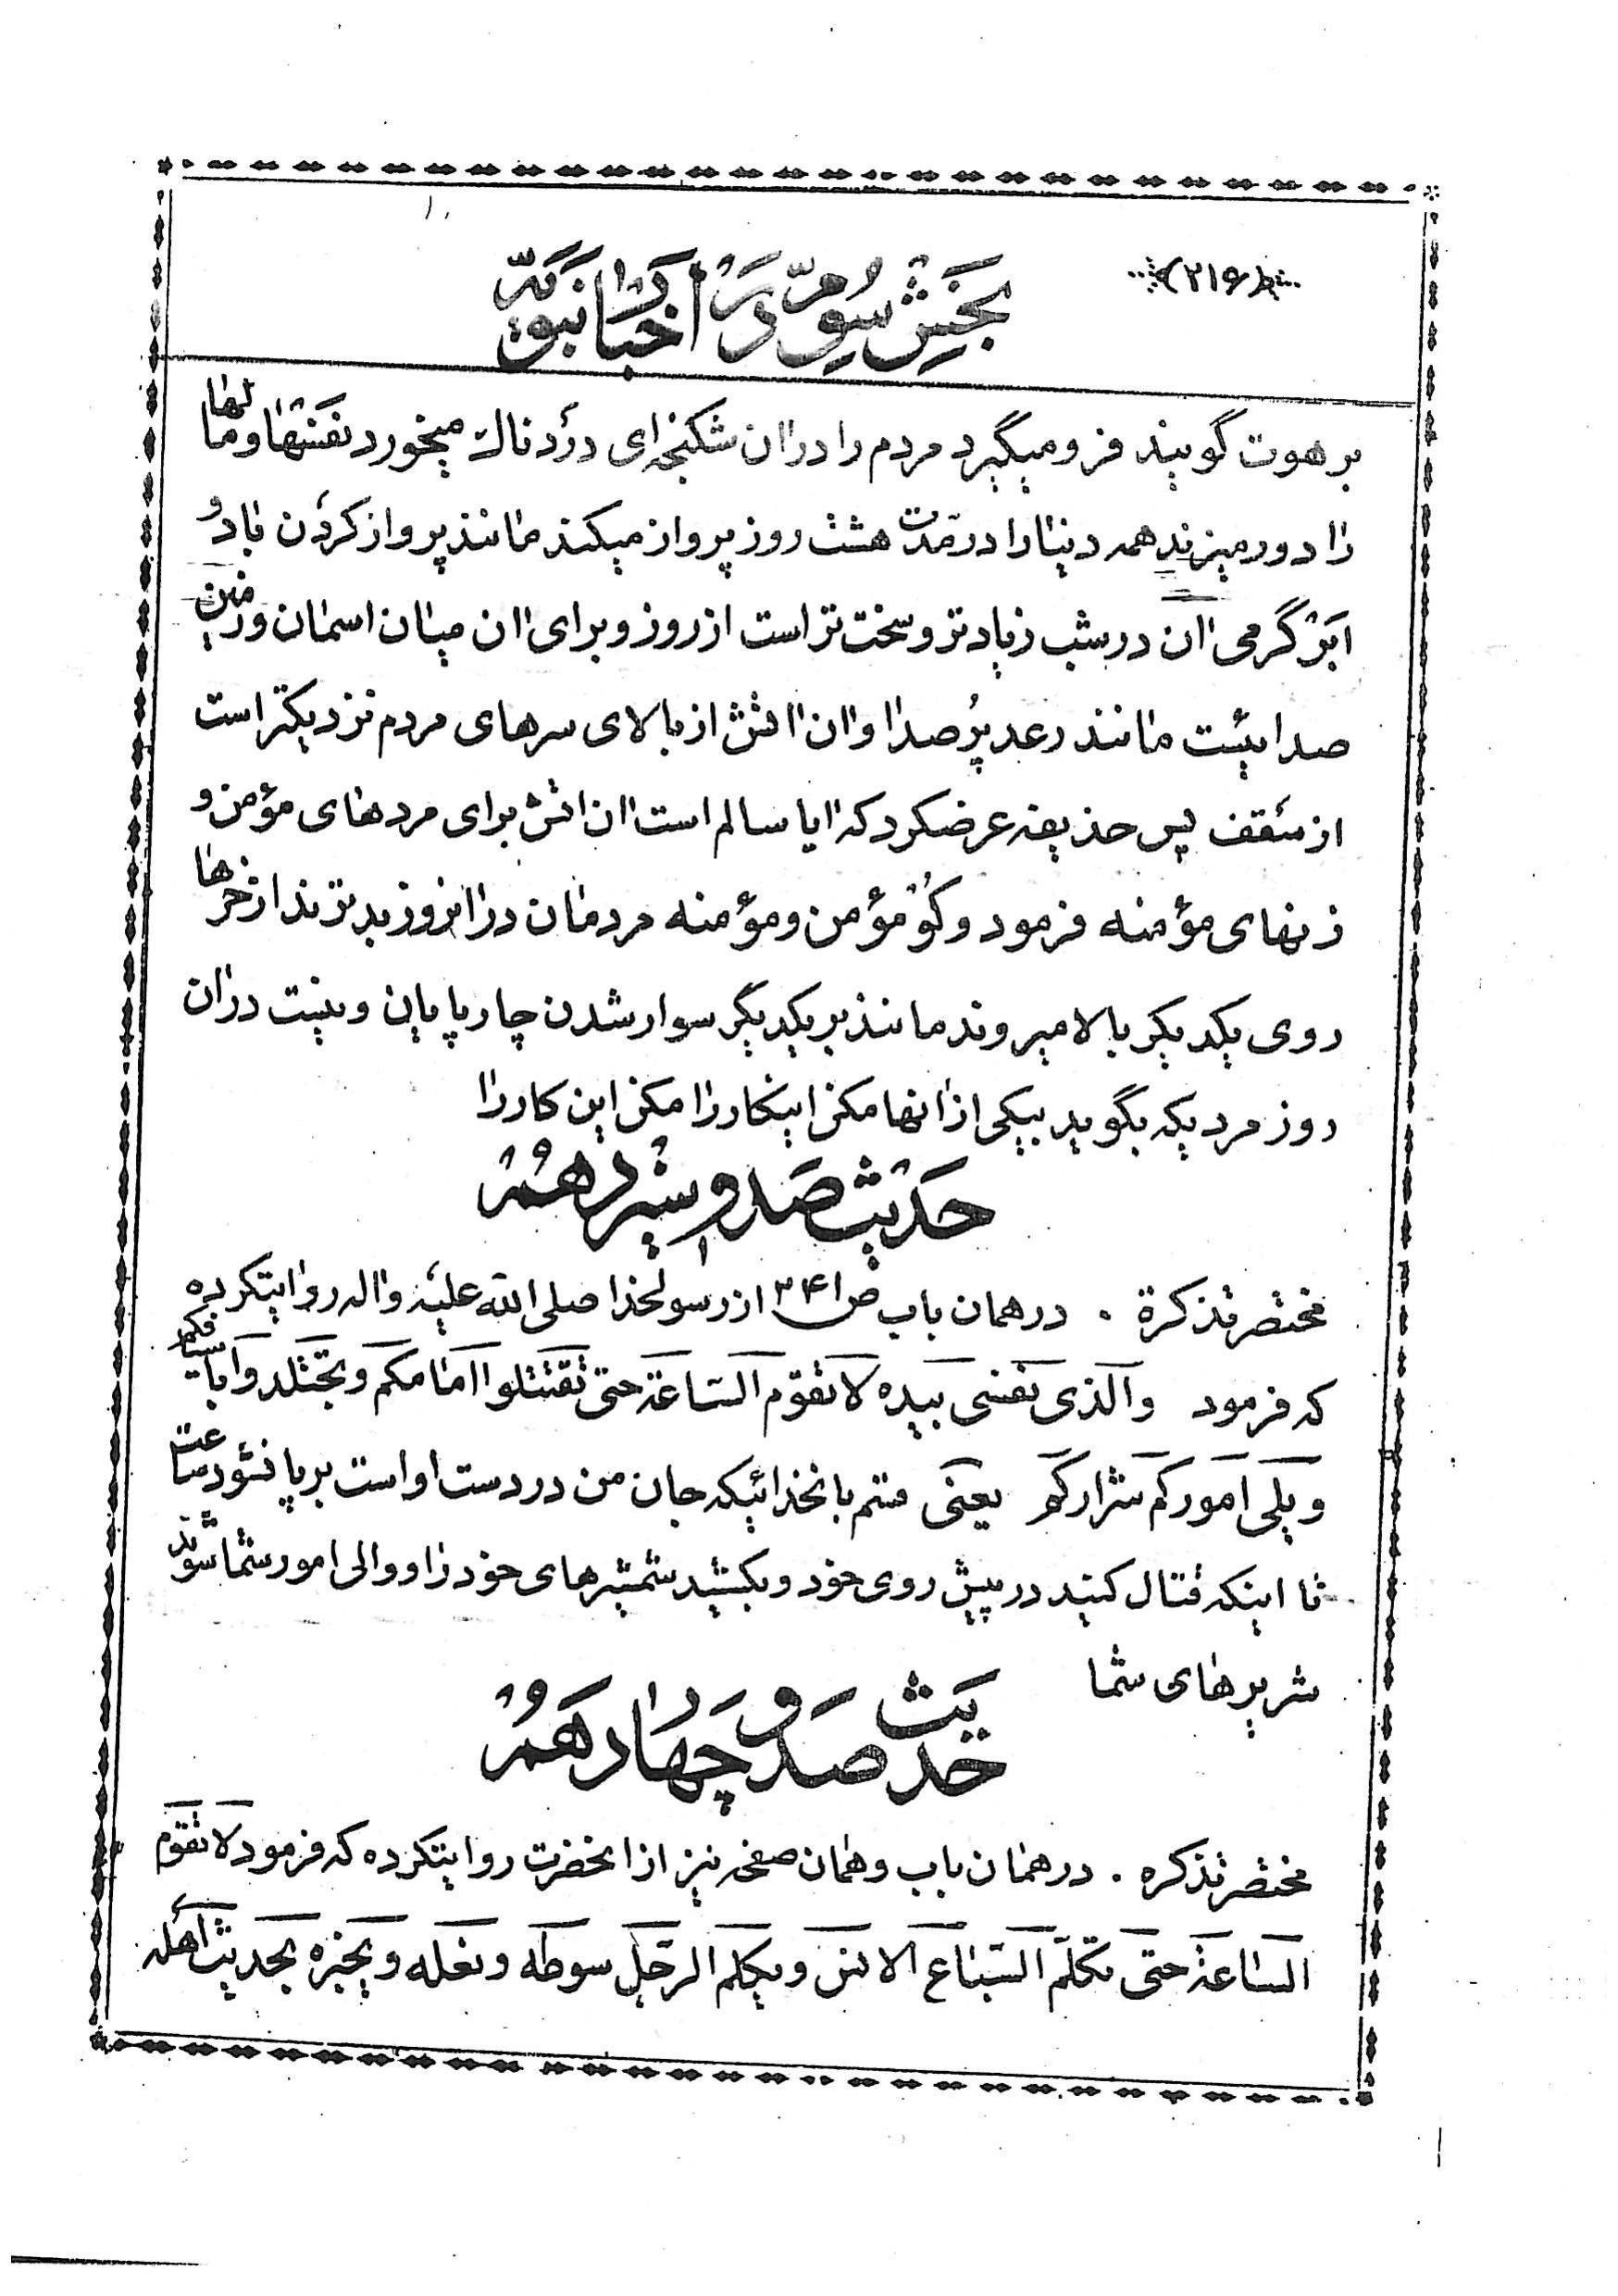 ﴿۲۱۶﴾
بخش سوم در اخبار نبویه
برهوت گویند فرومیگیرد مردم را در ان شکنجه‌ای دردناک میخورد نفسها و مالها
را دور میزند همه دنیا را در مدت هشت روز پرواز میکند مانند پرواز کردن باد و
ابر گرمی ان در شب زیادتر و سخت‌تر است از روز و برای ان میان اسمان و زمین
صدائیست مانند رعد پر صدا و ان اتش از بالای سرهای مردم نزدیکتر است
از سقف پس حذیفه عرضکرد که ایا سالم است ان اتش برای مردهای مؤمن و
زنهای مؤمنه فرمود و کو مؤمن و مؤمنه مردمان در انروز بدترند از خرها
روی یکدیگر بالا میروند مانند بر یکدیگر سوار شدن چارپایان و نیست در ان
روز مردیکه بگوید بیکی از انها مکن اینکار را مکن این کار را
حدیث صد و سیزدهم
مختصر تذکرة . در همان باب ص۳۴۱ از رسولخدا صلی الله علیه و اله روایتکرده
که فرمود والذی نفسی بیده لا تقوم الساعة حتی تقتتلوا امامکم و تجتلدوا باسیافکم
و یلی امورکم شرارکم یعنی قسم بانخدائیکه جان من در دست او است برپا نشود ساعت
تا اینکه قتال کنید در پیش روی خود و بکشید شمشیرهای خود را و والی امور شما شوند
شریرهای شما
حدیث صد و چهاردهم
مختصر تذکره . در همان باب و همان صفحه نیز از انحضرت روایتکرده که فرمود لا تقوم
الساعة حتی تکلم السباع الانس و یکلم الرجل سوطه و نعله و یخبره بحدیث اهله